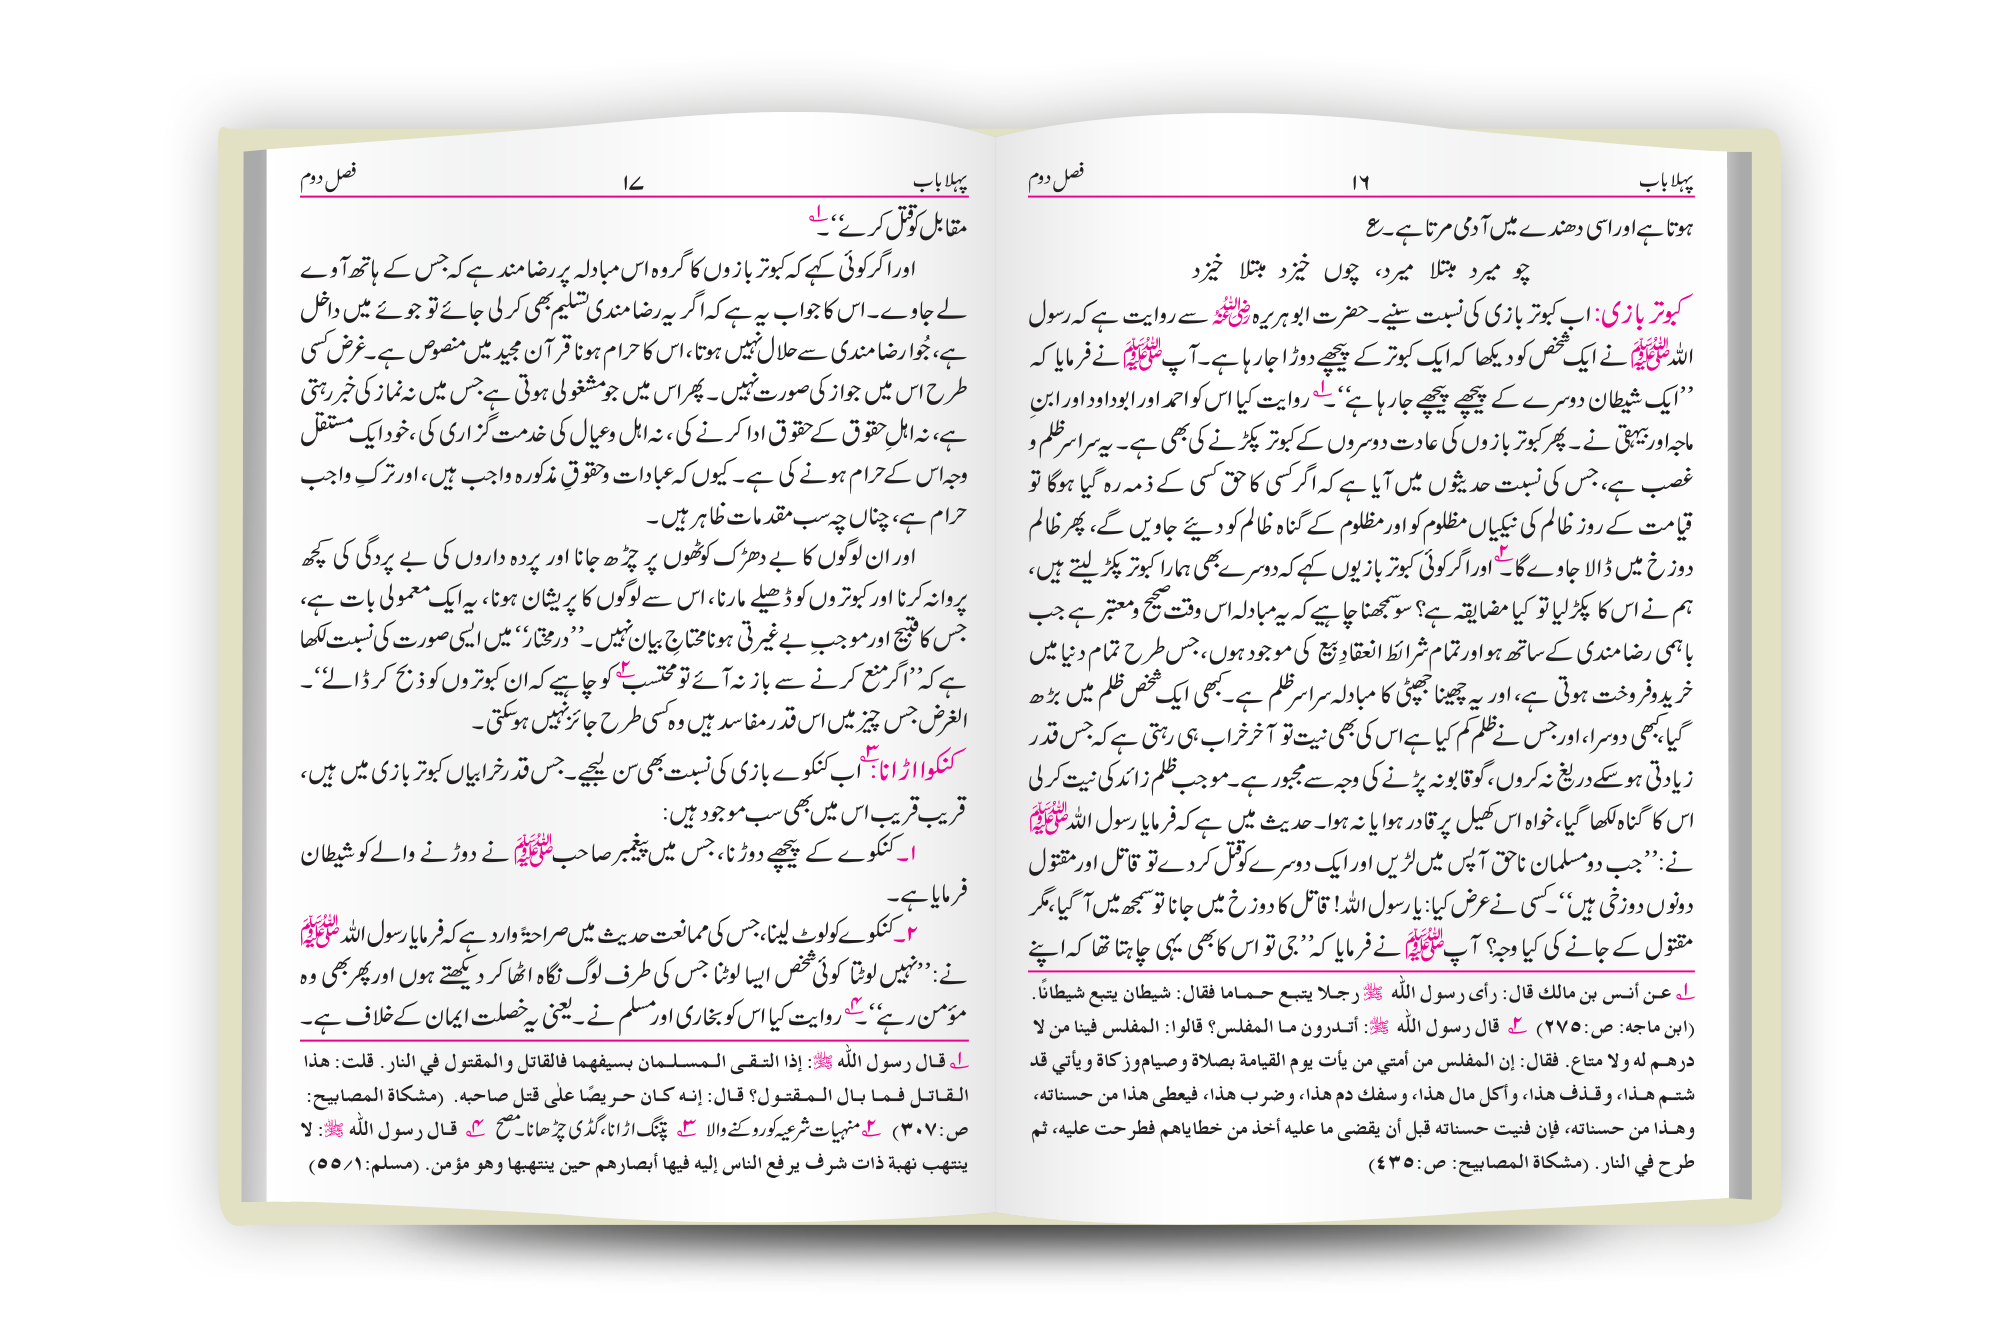 پہلا باب ۱۶ فصل دوم
ہوتا ہے اور اسی دھندے میں آدمی مرتا ہے۔ ع
چو میرد مبتلا میرد، چوں خیزد مبتلا خیزد
کبوتر بازی: اب کبوتر بازی کی نسبت سنیے۔ حضرت ابو ہریرہ رضی اللہ عنہ سے روایت ہے کہ رسول
اللہ ﷺ نے ایک شخص کو دیکھا کہ ایک کبوتر کے پیچھے دوڑا جا رہا ہے۔ آپ ﷺ نے فرمایا کہ
’’ایک شیطان دوسرے کے پیچھے پیچھے جا رہا ہے‘‘۔ ۱؎ روایت کیا اس کو احمد اور ابوداود اور ابنِ
ماجہ اور بیہقی نے۔ پھر کبوتر بازوں کی عادت دوسروں کے کبوتر پکڑنے کی بھی ہے۔ یہ سراسر ظلم و
غصب ہے، جس کی نسبت حدیثوں میں آیا ہے کہ اگر کسی کا حق کسی کے ذمہ رہ گیا ہوگا تو
قیامت کے روز ظالم کی نیکیاں مظلوم کو اور مظلوم کے گناہ ظالم کو دیئے جاویں گے، پھر ظالم
دوزخ میں ڈالا جاوے گا۔ ۲؎ اور اگر کوئی کبوتر بازیوں کہے کہ دوسرے بھی ہمارا کبوتر پکڑ لیتے ہیں،
ہم نے اس کا پکڑ لیا تو کیا مضایقہ ہے؟ سو سمجھنا چاہیے کہ یہ مبادلہ اس وقت صحیح و معتبر ہے جب
باہمی رضامندی کے ساتھ ہو اور تمام شرائط انعقادِ بیع کی موجود ہوں، جس طرح تمام دنیا میں
خرید و فروخت ہوتی ہے، اور یہ چھینا جھپٹی کا مبادلہ سراسر ظلم ہے۔ کبھی ایک شخص ظلم میں بڑھ
گیا، کبھی دوسرا، اور جس نے ظلم کم کیا ہے اس کی بھی نیت تو آخر خراب ہی رہتی ہے کہ جس قدر
زیادتی ہو سکے دریغ نہ کروں، گو قابو نہ پڑنے کی وجہ سے مجبور ہے۔ موجب ظلم زائد کی نیت کر لی
اس کا گناہ لکھا گیا، خواہ اس کھیل پر قادر ہوا یا نہ ہوا۔ حدیث میں ہے کہ فرمایا رسول اللہ ﷺ
نے: ’’جب دو مسلمان ناحق آپس میں لڑیں اور ایک دوسرے کو قتل کردے تو قاتل اور مقتول
دونوں دوزخی ہیں‘‘۔ کسی نے عرض کیا: یا رسول اللہ! قاتل کا دوزخ میں جانا تو سمجھ میں آ گیا، مگر
مقتول کے جانے کی کیا وجہ؟ آپ ﷺ نے فرمایا کہ ’’جی تو اس کا بھی یہی چاہتا تھا کہ اپنے
۱؎ عن أنس بن مالك قال: رأى رسول الله ﷺ رجلا يتبع حماما فقال: شيطان يتبع شيطانًا.
(ابن ماجه: ص:۲۷۵) ۲؎ قال رسول الله ﷺ: أتدرون ما المفلس؟ قالوا: المفلس فينا من لا
درهم له ولا متاع. فقال: إن المفلس من أمتي من يأت يوم القيامة بصلاة وصيام وزكاة ويأتي قد
شتم هذا، وقذف هذا، وأكل مال هذا، وسفك دم هذا، وضرب هذا، فيعطى هذا من حسناته،
وهذا من حسناته، فإن فنيت حسناته قبل أن يقضى ما عليه أخذ من خطاياهم فطرحت عليه، ثم
طرح في النار. (مشكاة المصابيح: ص:۴۳۵)
پہلا باب ۱۷ فصل دوم
مقابل کو قتل کرے‘‘۔ ۱؎
اور اگر کوئی کہے کہ کبوتر بازوں کا گروہ اس مبادلہ پر رضامند ہے کہ جس کے ہاتھ آوے
لے جاوے۔ اس کا جواب یہ ہے کہ اگر یہ رضامندی تسلیم بھی کر لی جائے تو جوئے میں داخل
ہے، جُوا رضامندی سے حلال نہیں ہوتا، اس کا حرام ہونا قرآن مجید میں منصوص ہے۔ غرض کسی
طرح اس میں جواز کی صورت نہیں۔ پھر اس میں جو مشغولی ہوتی ہے جس میں نہ نماز کی خبر رہتی
ہے، نہ اہلِ حقوق کے حقوق ادا کرنے کی، نہ اہل وعیال کی خدمت گزاری کی، خود ایک مستقل
وجہ اس کے حرام ہونے کی ہے۔ کیوں کہ عبادات و حقوقِ مذکورہ واجب ہیں، اور ترکِ واجب
حرام ہے، چناں چہ سب مقدمات ظاہر ہیں۔
اور ان لوگوں کا بے دھڑک کوٹھوں پر چڑھ جانا اور پردہ داروں کی بے پردگی کی کچھ
پروا نہ کرنا اور کبوتروں کو ڈھیلے مارنا، اس سے لوگوں کا پریشان ہونا، یہ ایک معمولی بات ہے،
جس کا قبیح اور موجبِ بے غیرتی ہونا محتاجِ بیان نہیں۔ ’’درمختار‘‘ میں ایسی صورت کی نسبت لکھا
ہے کہ ’’اگر منع کرنے سے باز نہ آئے تو محتسب ۲؎ کو چاہیے کہ ان کبوتروں کو ذبح کر ڈالے‘‘۔
الغرض جس چیز میں اس قدر مفاسد ہیں وہ کسی طرح جائز نہیں ہوسکتی۔
کنکوا اڑانا: ۳؎ اب کنکوے بازی کی نسبت بھی سن لیجیے۔ جس قدر خرابیاں کبوتر بازی میں ہیں،
قریب قریب اس میں بھی سب موجود ہیں:
۱۔ کنکوے کے پیچھے دوڑنا، جس میں پیغمبر صاحب ﷺ نے دوڑنے والے کو شیطان
فرمایا ہے۔
۲۔ کنکوے کو لوٹ لینا، جس کی ممانعت حدیث میں صراحۃً وارد ہے کہ فرمایا رسول اللہ ﷺ
نے: ’’نہیں لوٹتا کوئی شخص ایسا لوٹنا جس کی طرف لوگ نگاہ اٹھا کر دیکھتے ہوں اور پھر بھی وہ
مؤمن رہے‘‘۔ ۴؎ روایت کیا اس کو بخاری اور مسلم نے۔ یعنی یہ خصلت ایمان کے خلاف ہے۔
۱؎ قال رسول الله ﷺ: إذا التقى المسلمان بسيفهما فالقاتل والمقتول في النار. قلت: هذا
القاتل فما بال المقتول؟ قال: إنه كان حريصًا على قتل صاحبه. (مشكاة المصابيح:
ص:۳۰۷) ۲؎ منہیات شرعیہ کو روکنے والا ۳؎ پتنگ اڑانا، گڈی چڑھانا۔ مصحح ۴؎ قال رسول الله ﷺ: لا
ينتهب نهبة ذات شرف يرفع الناس إليه فيها أبصارهم حين ينتهبها وهو مؤمن. (مسلم:۱/۵۵)